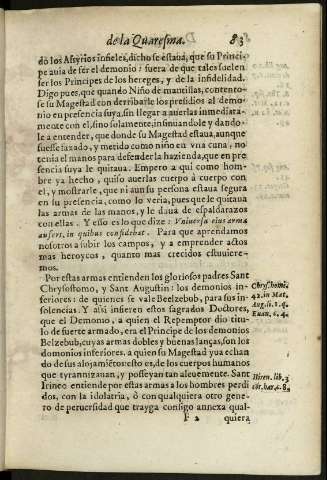 de la Quaresma. 83
do los Assyrios infieles, dicho se estaua, que su Princi-
pe auia de ser el demonio: fuera de que tales suelen
ser los Principes de los hereges, y de la infidelidad.
Digo pues, que quando Niño de mantillas, contento-
se su Magestad con derribarle los presidios al demo-
nio en presencia suya, sin llegar a auerlas inmediata-
mente con el, sino solamente, insinuandole y dando-
le a entender, que donde su Magestad estaua, aunque
fuesse faxado, y metido como niño en vna cuna, no
tenia el manos para defender la hazienda, que en pre
sencia suya le quitaua. Empero a qui como hom-
bre ya hecho, quiso auerlas cuerpo a cuerpo con
el, y mostrarle, que ni aun su persona estaua segura
en su presencia, como lo veria, pues que le quitaua
las armas de las manos, y le daua de espaldarazos
con ellas. Y esso es lo que dize: Vniuersa eius arma
aufert, in quibus confidebat. Para que aprendamos
nosotros a subir los campos, y a emprender actos
mas heroycos, quanto mas crecidos estuuiere-
mos.
Por estas armas entienden los gloriosos padres Sant
Chrysostomo, y Sant Augustin: los demonios in-
feriores: de quienes se vale Beelzebub, para sus in-
solencias. Y assi infieren estos sagrados Doctores,
que el Demonio, a quien el Repemptor dio titu-
lo de fuerte armado, era el Principe de los demonios
Belzebub, cuyas armas dobles y buenas lanças, son los
domonios inferiores. a quien su Magestad yua echan
do de sus alojamiẽtos: esto es, de los cuerpos humanos
que tyrannizanan, y posseyan tan aleuemente. Sant
Irineo entiende por estas armas a los hombres perdi
dos, con la idolatria, ò con qualquiera otro gene-
ro de peruersidad que trayga consigo annexa qual-
F 2 quiera
Chrysostom.
42. in Mat.
Aug. li. 1. q.
Euan. c. 4.
Hiren. lib. 3
cõr. har. c. 8.